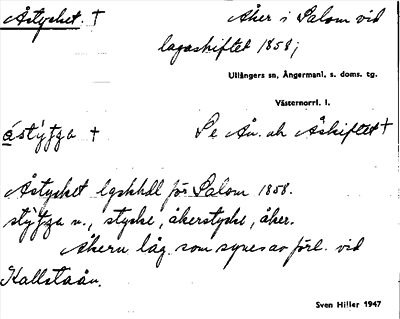 Åstycket. †
Åker i Salom vid
lagaskiftet 1858;
Ullångers sn, Ångermanl. s. doms. tg.
Västernorrl. l.
ástýʈʂa †
Se Ån. ok Åskiftet †
Åstycket lgskhdl för Salom 1858.
stýʈʂa n., stycke, åkerstycke, åker.
Åkern låg som synes av förl. vid
Hallstaån.
Sven Hiller 1947